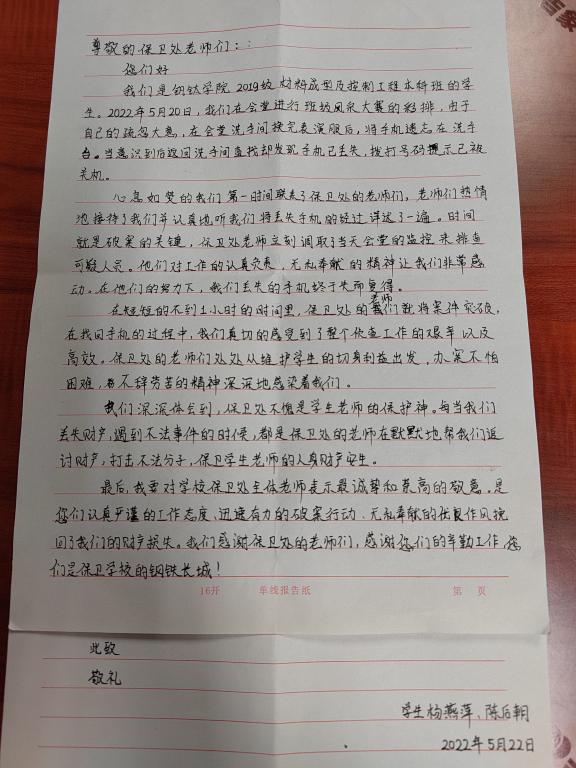 尊敬的保卫处老师们：:
您们好
我们是钒钛学院2019级材料成型及控制工程本科班的学
生。2022年5月20日，我们在会堂进行班级风采大赛的彩排，由于
自己的疏忽大意，在会堂洗手间换完表演服后，将手机遗忘在洗手
台。当意识到后返回洗手间查找却发现手机已丢失，拨打号码提示已被
关机。
心急如焚的我们第一时间联系了保卫处的老师们，老师们热情
地接待了我们并认真地听我们将丢失手机的经过详述了一遍。时间
就是破案的关键，保卫处老师立刻调取了当天会堂的监控来排查
可疑人员。他们对工作的认真负责，无私奉献的精神让我们非常感
动。在他们的努力下，我们丢失的手机终于失而复得。
在短短的不到1小时的时间里，保卫处的老师们就将案件突破，
在找回手机的过程中，我们真切的感受到了整个侦查工作的艰辛以及
高效。保卫处的老师们处处从维护学生的切身利益出发，办案不怕
困难，不辞劳苦的精神深深地感染着我们。
我们深深体会到，保卫处不愧是学生老师的保护神。每当我们
丢失财产，遇到不法事件的时候，都是保卫处的老师在默默地帮我们追
讨财产，打击不法分子，保卫学生老师的人身财产安全。
最后，我要对学校保卫处全体老师表示最诚挚和崇高的敬意。是
您们认真严谨的工作态度、迅速有力的破案行动、无私奉献的优良作风挽
回了我们的财产损失。我们感谢保卫处的老师们，感谢您们的辛勤工作，您
们是保卫学校的钢铁长城！
16开 单线报告纸 第 页
此致
敬礼
学生杨燕萍、陈后朝
2022年5月22日